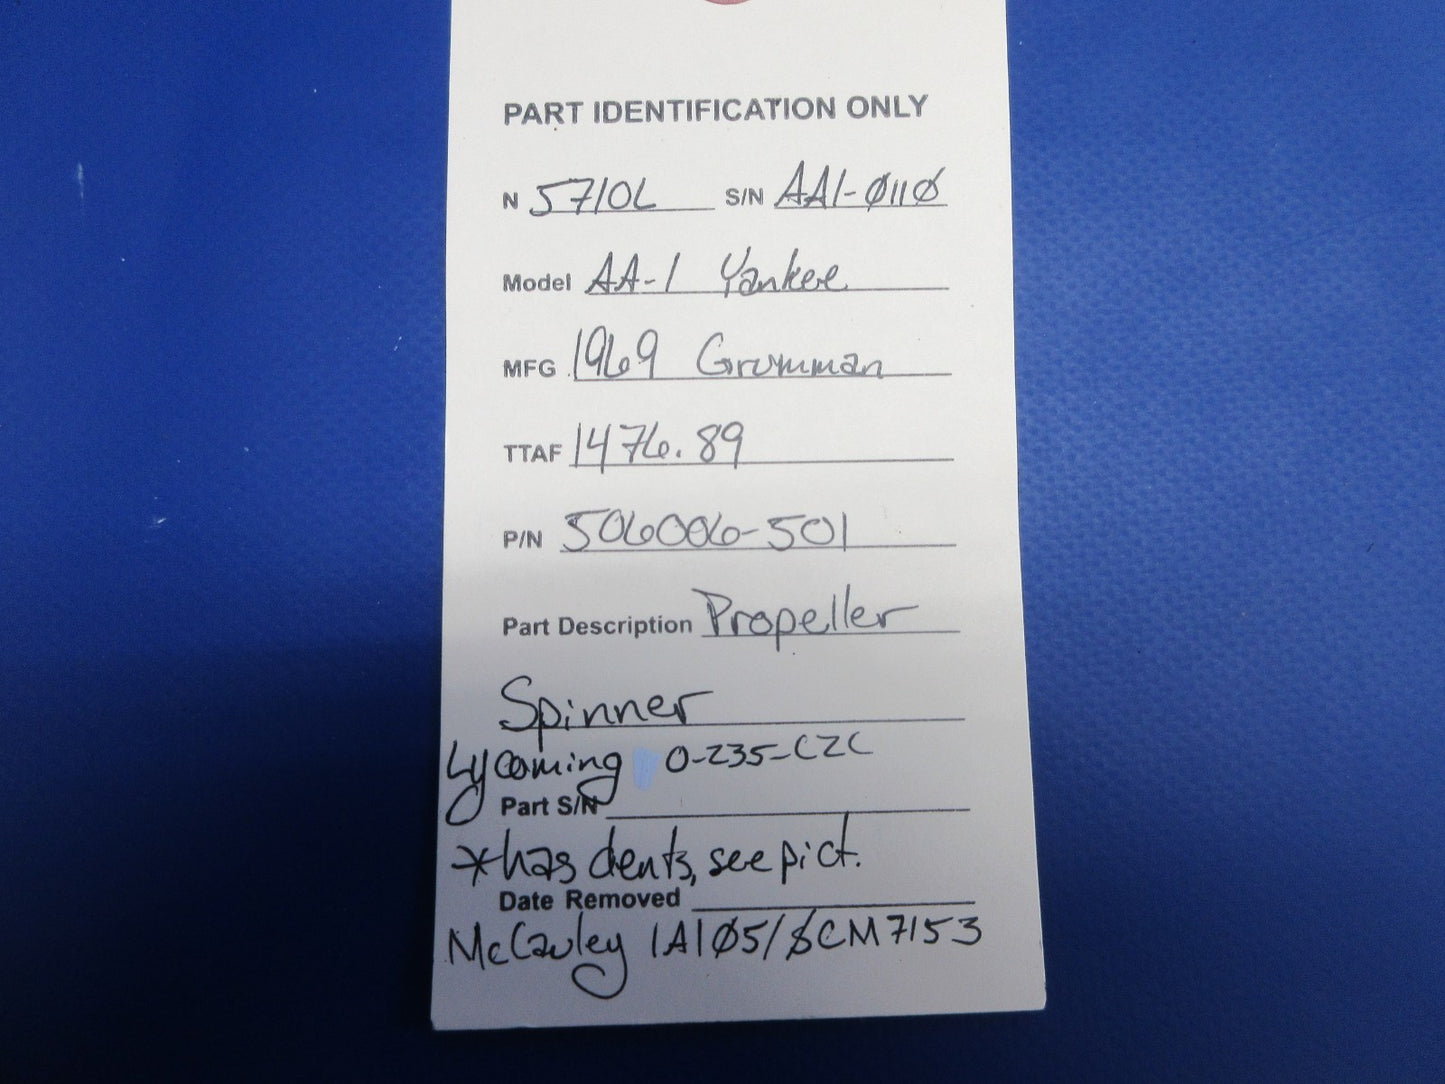 PART IDENTIFICATION ONLY
N 5710L S/N AA1-0110
Model AA-1 Yankee
MFG 1969 Grumman
TTAF 1476.89
P/N 506006-501
Part Description Propeller
Spinner
Lycoming O-235-C2C
Part S/N
*has dents, see pict.
Date Removed
McCauley 1A105/SCM7153